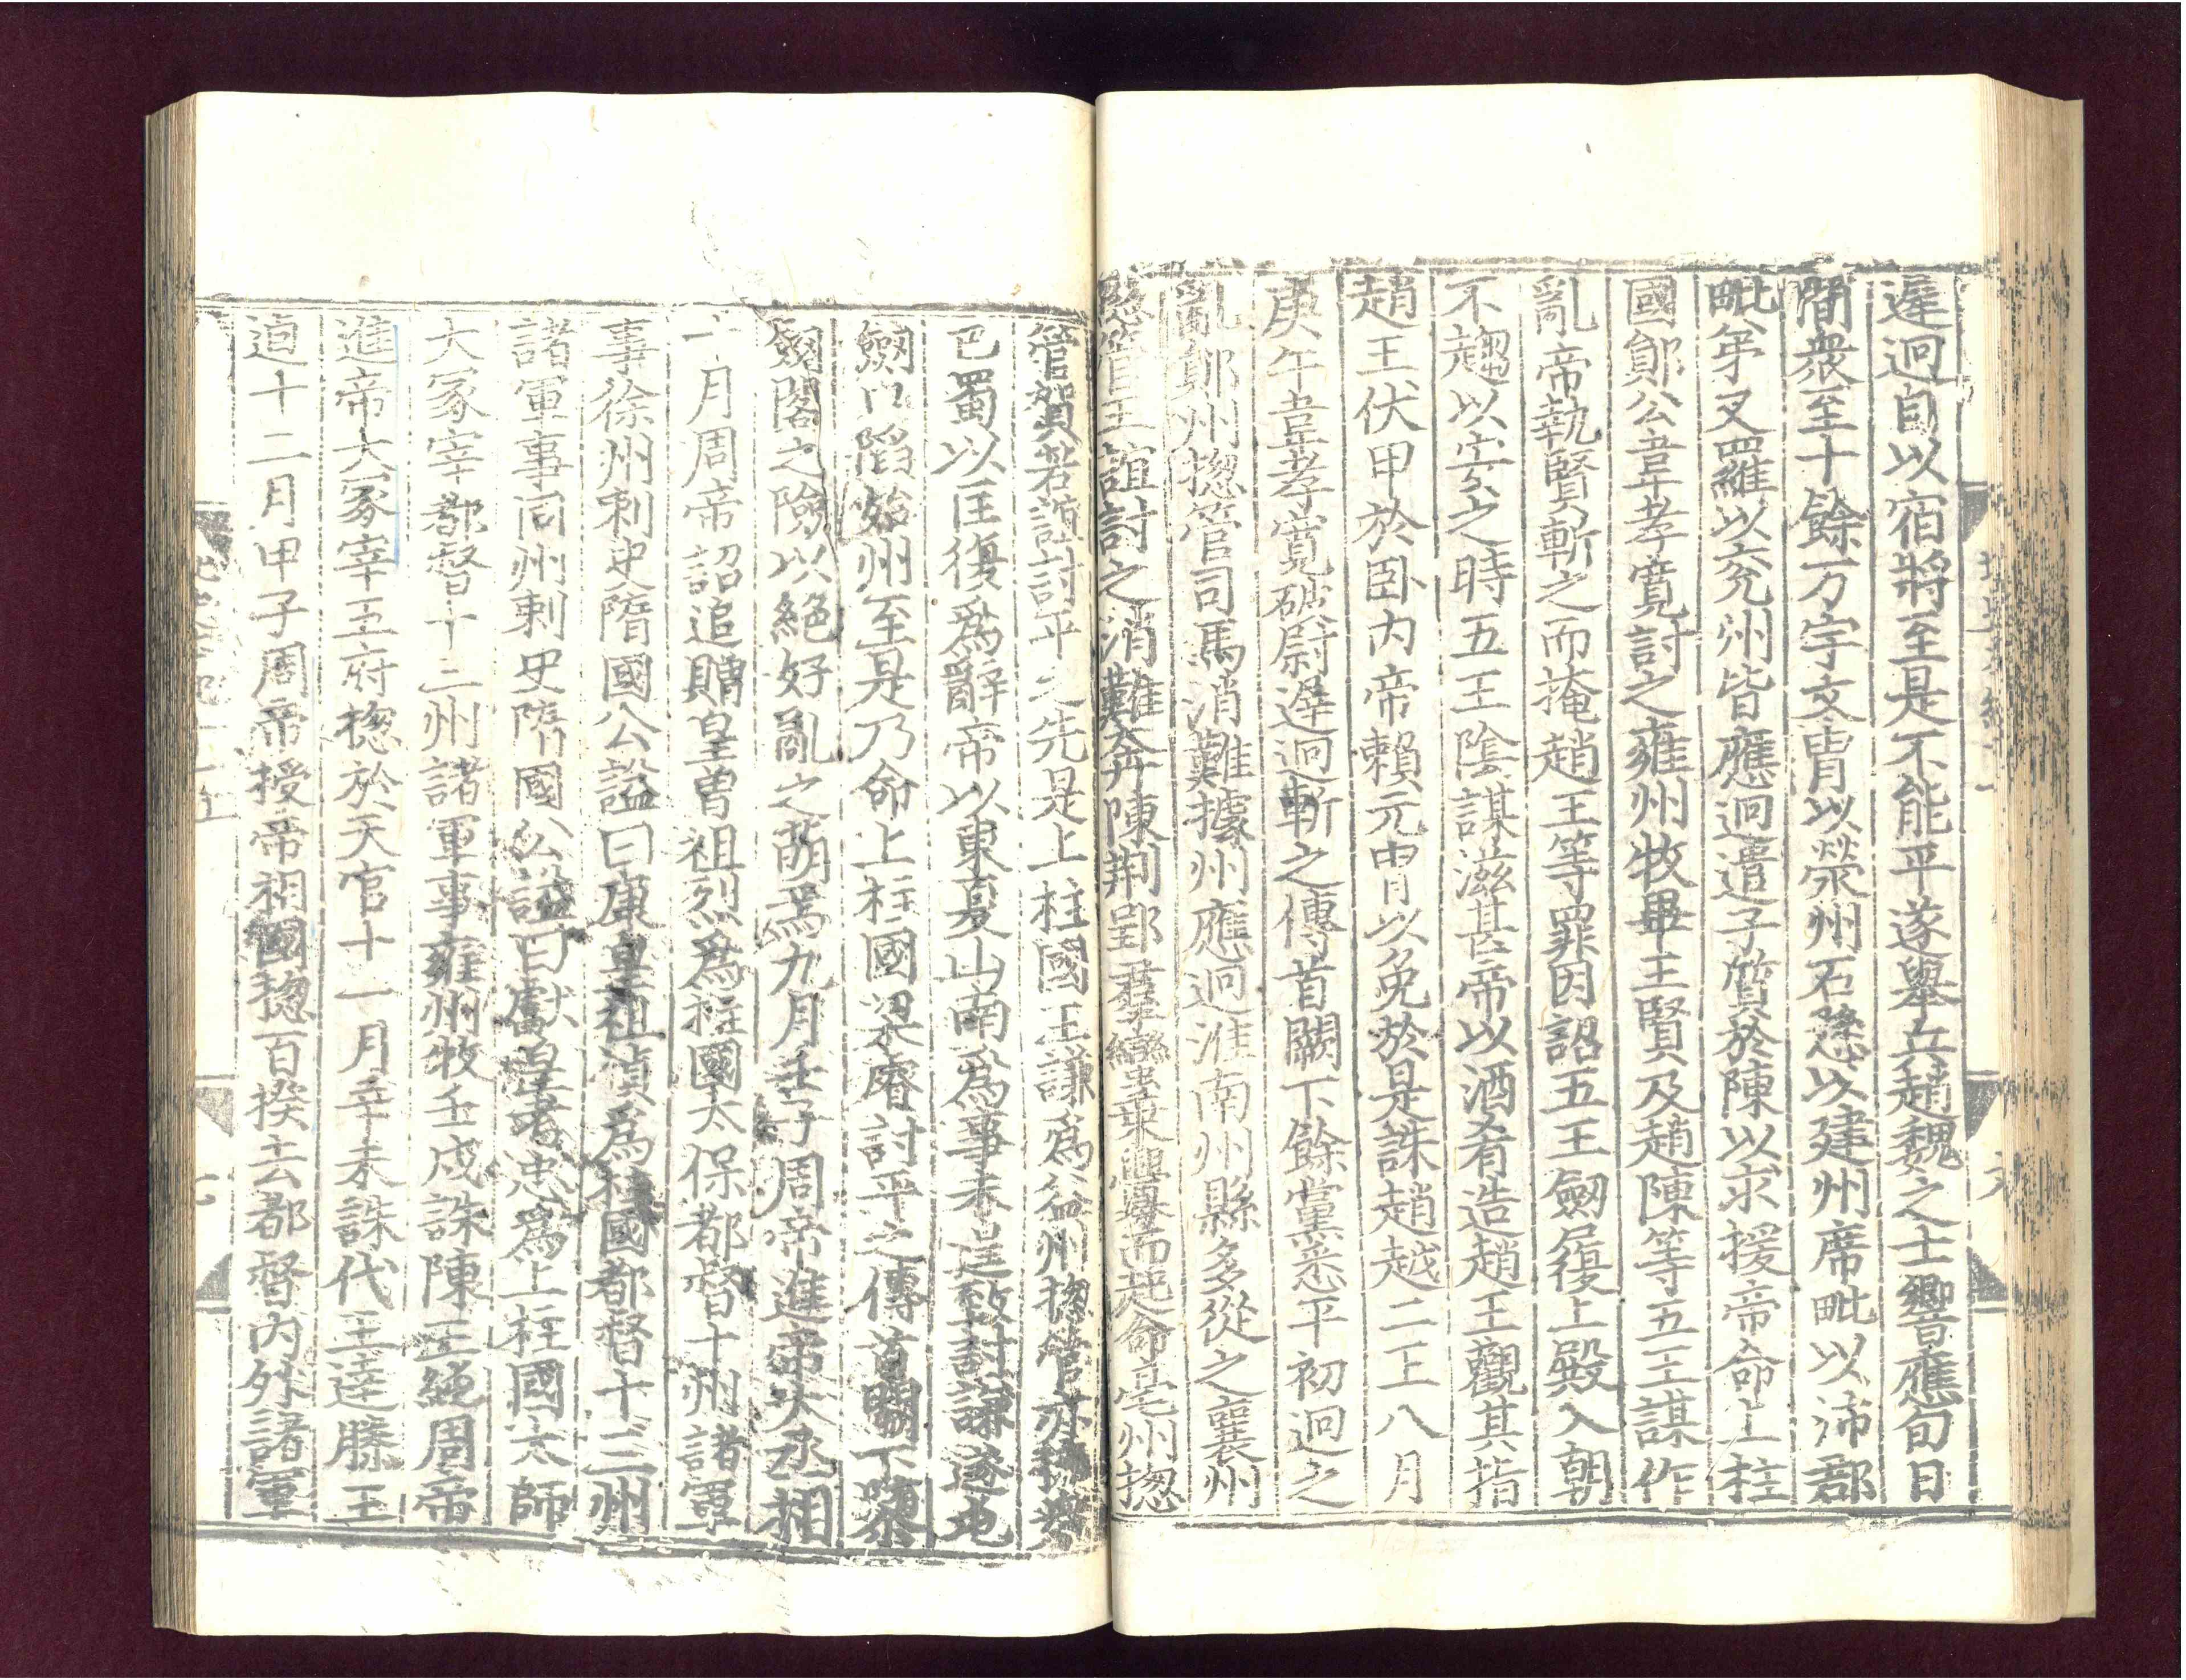 遲迥自以宿將至是不能平遂舉兵趙魏之士響應旬日
間衆至十餘万宇文冑以滎州石愻以建州席毗以沛郡
毗弟叉羅以兖州皆應迥遣子質於陳以求援帝命上柱
國鄖公韋孝寬討之雍州牧畢王賢及趙陳等五王謀作
亂帝執賢斬之而掩趙王等罪因詔五王劒履上殿入朝
不趨以安之時五王陰謀滋甚帝以酒肴造趙王觀其指
趙王伏甲於卧内帝賴元冑以免於是誅趙越二王八月
庚午韋孝寬破尉遲迥斬之傳首闕下餘黨悉平初迥之
亂鄖州揔管司馬消難據州應迥淮南州縣多從之襄州
揔管王誼討之消難奔陳荆郢羣蠻乘舋而起命亳州揔
管賀若誼討平之先是上柱國王謙爲益州揔管亦擁衆
巴蜀以匡復爲辭帝以東夏山南爲事未遑致討謙遂屯
劒口陷始州至是乃命上柱國梁睿討平之傳首闕下隳
劒閣之險以絶好亂之萌焉九月壬子周帝進帝大丞相
十月周帝詔追贈皇曽祖烈爲柱國太保都督十州諸軍
事徐州刺史隋國公謚曰康皇祖禎爲柱國都督十三州
諸軍事同州刺史隋國公謚曰獻皇考忠爲上柱國太師
大冢宰都督十三州諸軍事雍州牧壬戌誅陳王純周帝
進帝大冢宰五府揔於天官十一月辛未誅代王達滕王
逌十二月甲子周帝授帝相國揔百揆去都督内外諸軍